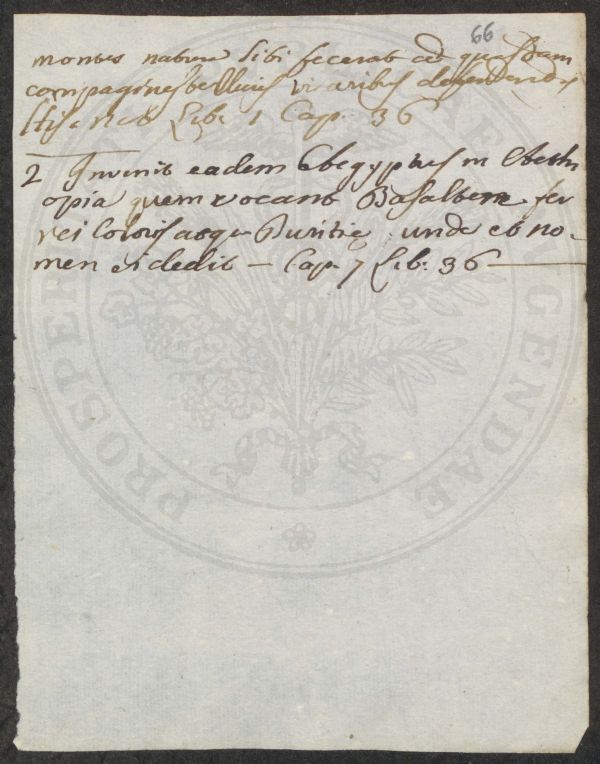 66
montes natura sibi fecerat ad quasdam
compagines telluris visceribus densendis
Lib. 1 Cap. 36
2 Invenit eadem Aegyptus in Aethi
opia quem vocant Basalten fer
rei Coloris atque Duritię. unde et no-
men ei dedit — Cap. 7 Lib. 36 —
PROSPER AUGENDAE